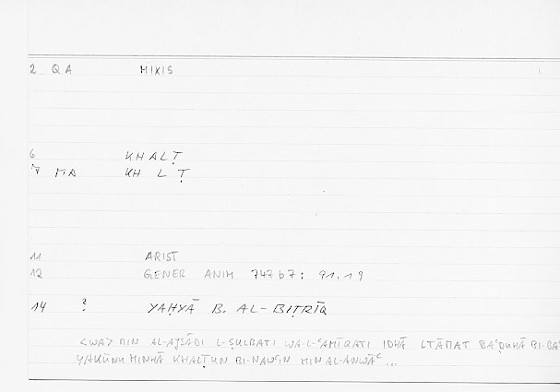 2 QA MIXIS
6 KHALṬ
7 MA KH L Ṭ
11 ARIST
12 GENER ANIM 747 b 7 : 91.19
14 ? YAḤYĀ B. AL-BIṬRĪQ
<WA> MIN AL-AJSĀDI L-ṢULBATI WA-L-ʿAMĪQATI IDHĀ LTĀMAT BAʿḌUHĀ BI-BAʿ
YAKŪNU MINHĀ KHALṬUN BI-NAWʿIN MIN AL-ANWĀʿ ...